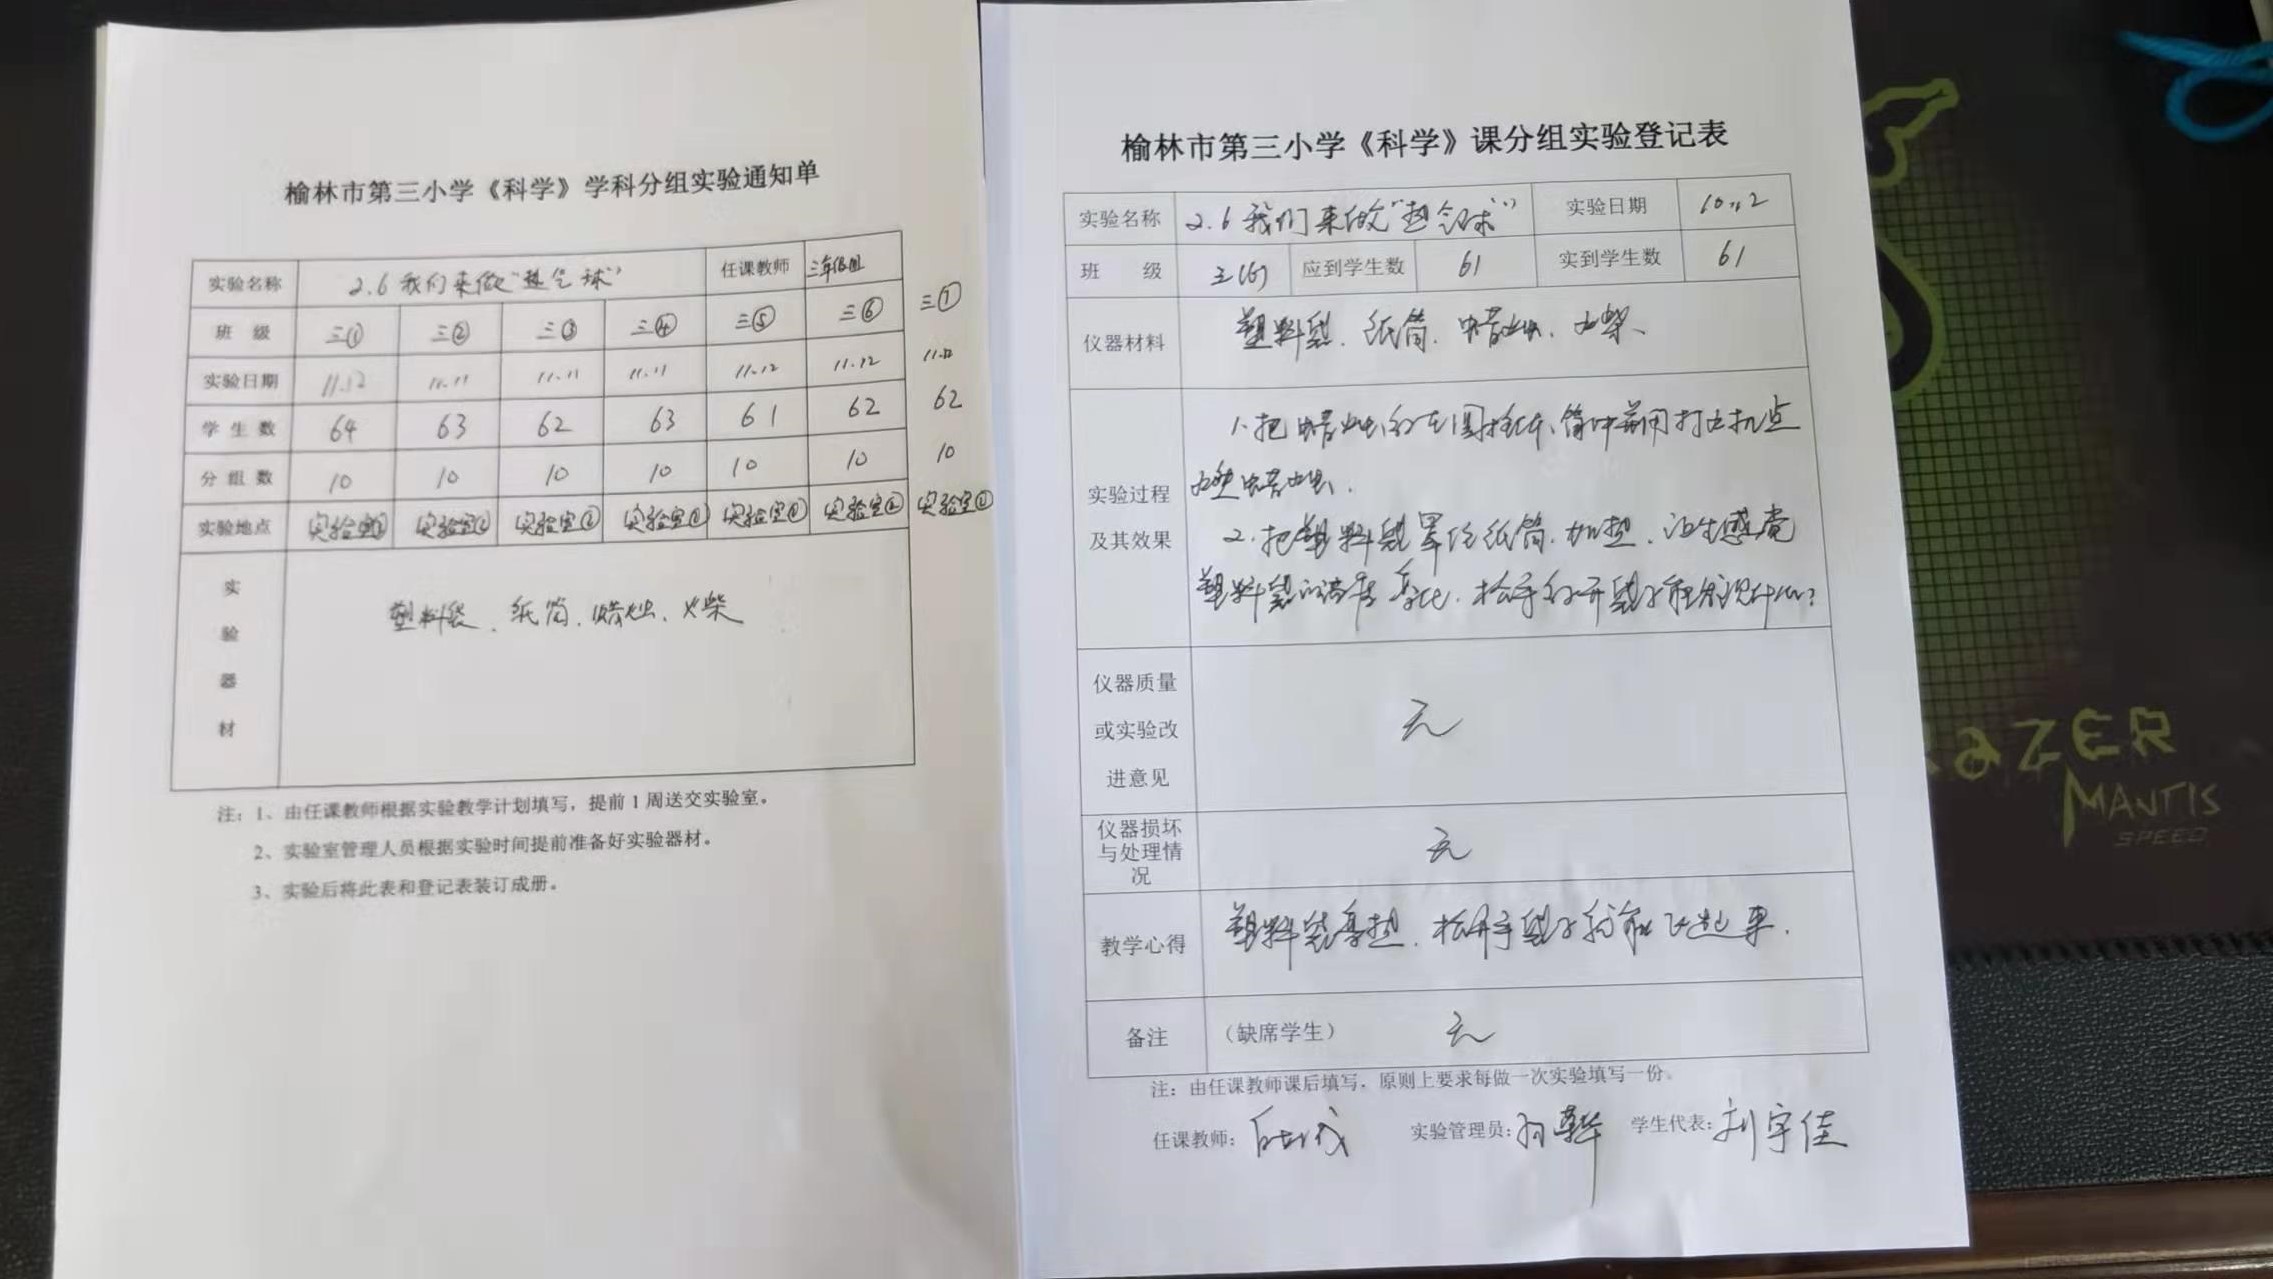 榆林市第三小学《科学》学科分组实验通知单
实验名称 2.6 我们来做“热气球” 任课教师 三年级组
班 级 三① 三② 三③ 三④ 三⑤ 三⑥ 三⑦
实验日期 11.12 11.11 11.11 11.11 11.12 11.12 11.12
学 生 数 64 63 62 63 61 62 62
分 组 数 10 10 10 10 10 10 10
实验地点 实验室 实验室 实验室② 实验室 实验室 实验室② 实验室
实验器材
塑料袋、纸筒、蜡烛、火柴
注：1、由任课教师根据实验教学计划填写，提前1周送交实验室。
2、实验室管理人员根据实验时间提前准备好实验器材。
3、实验后将此表和登记表装订成册。
榆林市第三小学《科学》课分组实验登记表
实验名称 2.6 我们来做“热气球” 实验日期
班 级 应到学生数 61 实到学生数 61
仪器材料 塑料袋、纸筒、蜡烛、火柴、
实验过程及其效果
1.把蜡烛 筒 并用打火机点
燃蜡烛.
2.把塑料袋罩住纸筒.加热.让学生感觉
塑料袋的温度 松手
仪器质量或实验改进意见 无
仪器损坏与处理情况 无
教学心得 塑料袋 热.松开手袋子 能飞起来.
备注 （缺席学生） 无
注：由任课教师课后填写，原则上要求每做一次实验填写一份。
任课教师： 实验管理员： 学生代表：刘宇佳
RAZER
MANTIS
SPEED